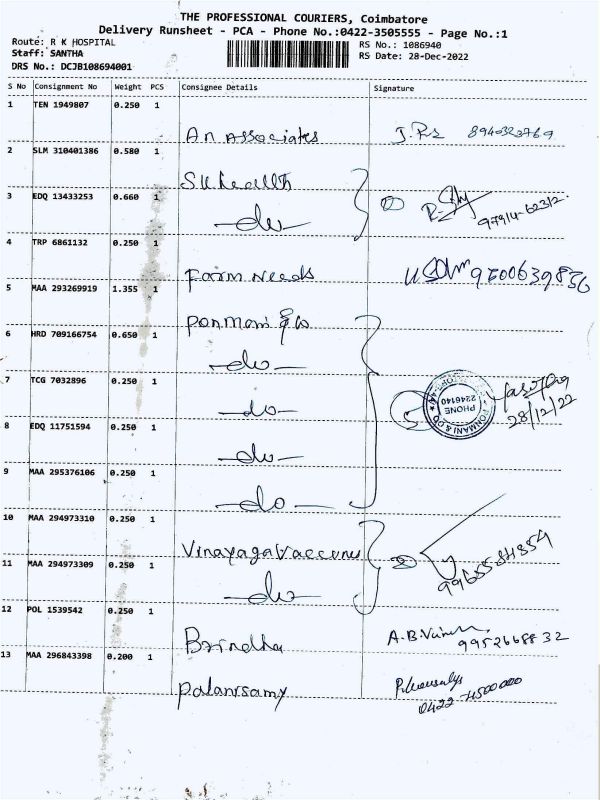 THE PROFESSIONAL COURIERS, Coimbatore
Delivery Runsheet - PCA - Phone No.:0422-3505555 - Page No.:1
Route: R K HOSPITAL
Staff: SANTHA
DRS No.: DCJB108694001
RS No.: 1086940
RS Date: 28-Dec-2022
S No Consignment No Weight PCS Consignee Details Signature
1 TEN 1949807 0.250 1
An Associates 8940323769
2 SLM 310401386 0.580 1
SK health
3 EDQ 13433253 0.660 1
-do- 2 97914-62312
4 TRP 6861132 0.250 1
Farm Needs 9500639856
5 MAA 293269919 1.355 1
Ponmani & Co
6 HRD 709166754 0.650 1
-do-
7 TCG 7032896 0.250 1
-do- 5 PONMANI & CO PHONE 2246140 28/12/22
8 EDQ 11751594 0.250 1
-do-
9 MAA 295376106 0.250 1
-do-
10 MAA 294973310 0.250 1
Vinayaga Vaccines 2
11 MAA 294973309 0.250 1
-do- 9965584354
12 POL 1539542 0.250 1
Brindha A.B. 9952668832
13 MAA 296843398 0.200 1
Palanisamy 0422-4500000